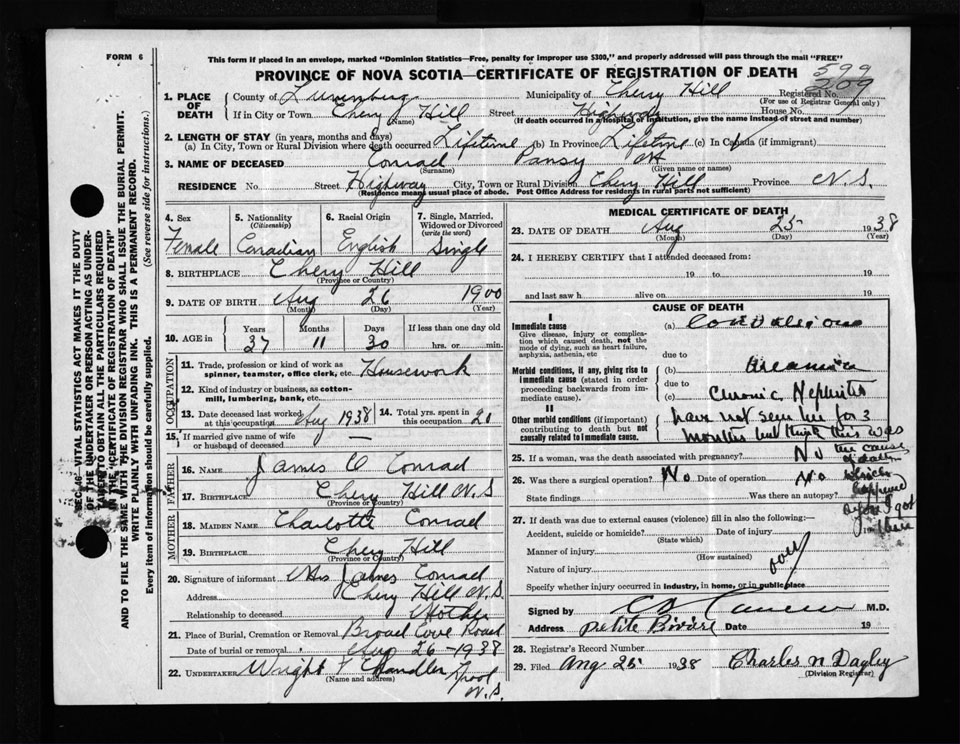 FORM 6
This form if placed in an envelope, marked "Dominion Statistics—Free, penalty for improper use $300," and properly addressed will pass through the mail "FREE"
PROVINCE OF NOVA SCOTIA—CERTIFICATE OF REGISTRATION OF DEATH
599
209
Registered No.
(For use of Registrar General only)
1. PLACE OF DEATH
County of Lunenburg Municipality of Chery Hill
If in City or Town Chery Hill Street Highway House No.
(Name) (If death occurred in a hospital or institution, give the name instead of street and number)
2. LENGTH OF STAY (in years, months and days)
(a) In City, Town or Rural Division where death occurred Lifetime (b) In Province Lifetime (c) In Canada (if immigrant)
3. NAME OF DECEASED Conrad Pansy
(Surname) (Given name or names)
RESIDENCE No. Street Highway City, Town or Rural Division Chery Hill Province N.S.
(Residence means usual place of abode. Post Office Address for residents in rural parts not sufficient)
4. Sex
Female
5. Nationality
(Citizenship)
Canadian
6. Racial Origin
English
7. Single, Married, Widowed or Divorced
(write the word)
Single
8. BIRTHPLACE Chery Hill
(Province or Country)
9. DATE OF BIRTH Aug 26 1900
(Month) (Day) (Year)
10. AGE in
Years Months Days If less than one day old
37 11 30 hrs. or min.
OCCUPATION
11. Trade, profession or kind of work as spinner, teamster, office clerk, etc. Housework
12. Kind of industry or business, as cotton-mill, lumbering, bank, etc.
13. Date deceased last worked at this occupation Aug 1938 14. Total yrs. spent in this occupation 20
15. If married give name of wife or husband of deceased —
FATHER
16. NAME James O Conrad
17. BIRTHPLACE Chery Hill N.S
(Province or Country)
MOTHER
18. MAIDEN NAME Charlotte Conrad
19. BIRTHPLACE Chery Hill
(Province or Country)
20. Signature of informant Mrs James Conrad
Address Chery Hill N.S.
Relationship to deceased Mother
21. Place of Burial, Cremation or Removal Broad Cove Road
Date of burial or removal Aug 26 - 1938
22. UNDERTAKER Wright F Chandler Lpool
(Name and address) N.S.
MEDICAL CERTIFICATE OF DEATH
23. DATE OF DEATH Aug 25 1938
(Month) (Day) (Year)
24. I HEREBY CERTIFY that I attended deceased from:
19 to 19
and last saw h alive on 19
CAUSE OF DEATH
I
Immediate cause
Give disease, injury or complication which caused death, not the mode of dying, such as heart failure, asphyxia, asthenia, etc
(a) Convulsions
due to
Morbid conditions, if any, giving rise to immediate cause (stated in order proceeding backwards from immediate cause).
(b) Uraemia
due to
(c) Chronic Nephritis
II
Other morbid conditions (if important) contributing to death but not causally related to immediate cause.
have not seen her for 3
months but think this was
the cause
of death
which
happened
before I got
there
25. If a woman, was the death associated with pregnancy? No
26. Was there a surgical operation? No Date of operation No
State findings Was there an autopsy?
27. If death was due to external causes (violence) fill in also the following:—
Accident, suicide or homicide? Date of injury 19
(State which)
Manner of injury
(How sustained)
over
Nature of injury
Specify whether injury occurred in industry, in home, or in public place
Signed by M.D.
Address Petite Riviere Date 19
28. Registrar's Record Number
29. Filed Aug 25 1938 Charles N Dagley
(Division Registrar)
SEC. 46. VITAL STATISTICS ACT MAKES IT THE DUTY
OF THE UNDERTAKER OR PERSON ACTING AS UNDERTAKER TO OBTAIN ALL THE PARTICULARS REQUIRED
IN THE "CERTIFICATE OF REGISTRATION OF DEATH"
AND TO FILE THE SAME WITH THE DIVISION REGISTRAR WHO SHALL ISSUE THE BURIAL PERMIT.
WRITE PLAINLY WITH UNFADING INK. THIS IS A PERMANENT RECORD.
Every item of information should be carefully supplied. (See reverse side for instructions.)